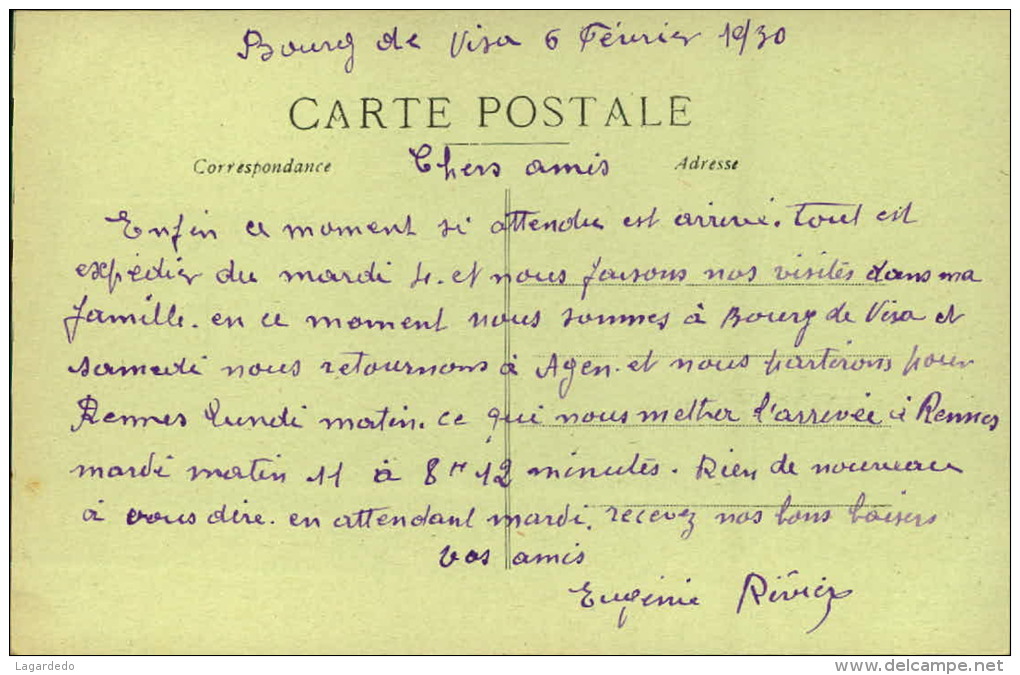 Bourg de Visa 6 Février 1930
CARTE POSTALE
Correspondance
Chers amis
Adresse
Enfin ce moment si attendu est arrivé. Tout est
expédier du mardi 4. et nous faisons nos visites dans ma
famille. en ce moment nous sommes à Bourg de Visa et
samedi nous retournons à Agen. et nous partirons pour
Rennes lundi matin. ce qui nous mettra l'arrivée à Rennes
mardi matin 11 à 8 Hr 12 minutes. Rien de nouveau
à vous dire. en attendant mardi. recevez nos bons baisers
vos amis
Eugénie Rivièr
Lagardedo
www.delcampe.net